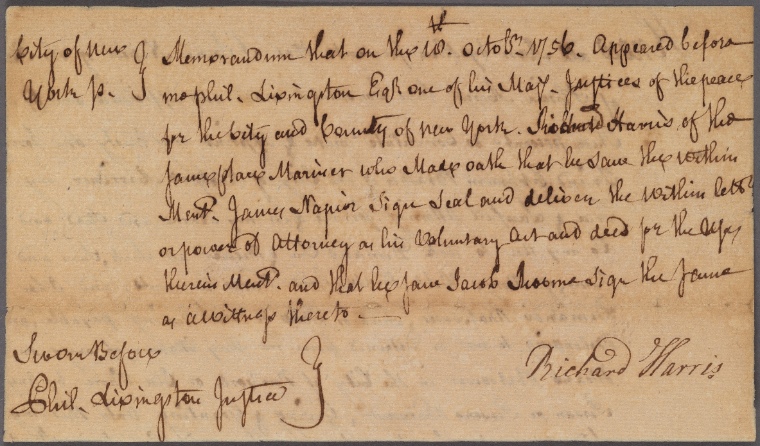 City of new York ss. Memorandum that on the 18th. Octobr. 1756. Appeared before
me Phil. Livingston Esqr. one of his Maj. Justices of the peace
for the City and County of new York. Richard Harris, of the
same place Mariner who Made oath that he Saw the within
Mentd. James Napier Sign Seal and deliver the within lettr.
or power of Attorney as his Voluntary Act and deed for the Uses
therein Mentd. and that he saw Jacob Roome Sign the Same
as a Wittness thereto
Sworn Before
Phil. Livingston Justice
Richard Harris